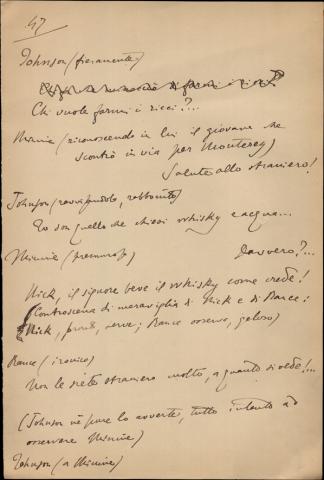 47
Johnson (fieramente)
Chi vuole farmi i ricci?...
Minnie (riconoscendo in lui il giovane che
scontrò in via per Monterey)
Salute allo straniero!
Johnson (ravvisandola, rabbonito)
Io son quello che chiesi whisky e acqua...
Minnie (premurosa) Davvero?...
Nick, il signore beve il whisky come crede!
(Controscena di meraviglia di Nick e di Rance:
Nick, serve; Rance osserva, geloso)
Rance (ironico)
Non le siete straniero molto, a quanto si vede!...
(Johnson nè pure lo avverte, tutto intento ad
osservare Minnie)
Johnson (a Minnie)